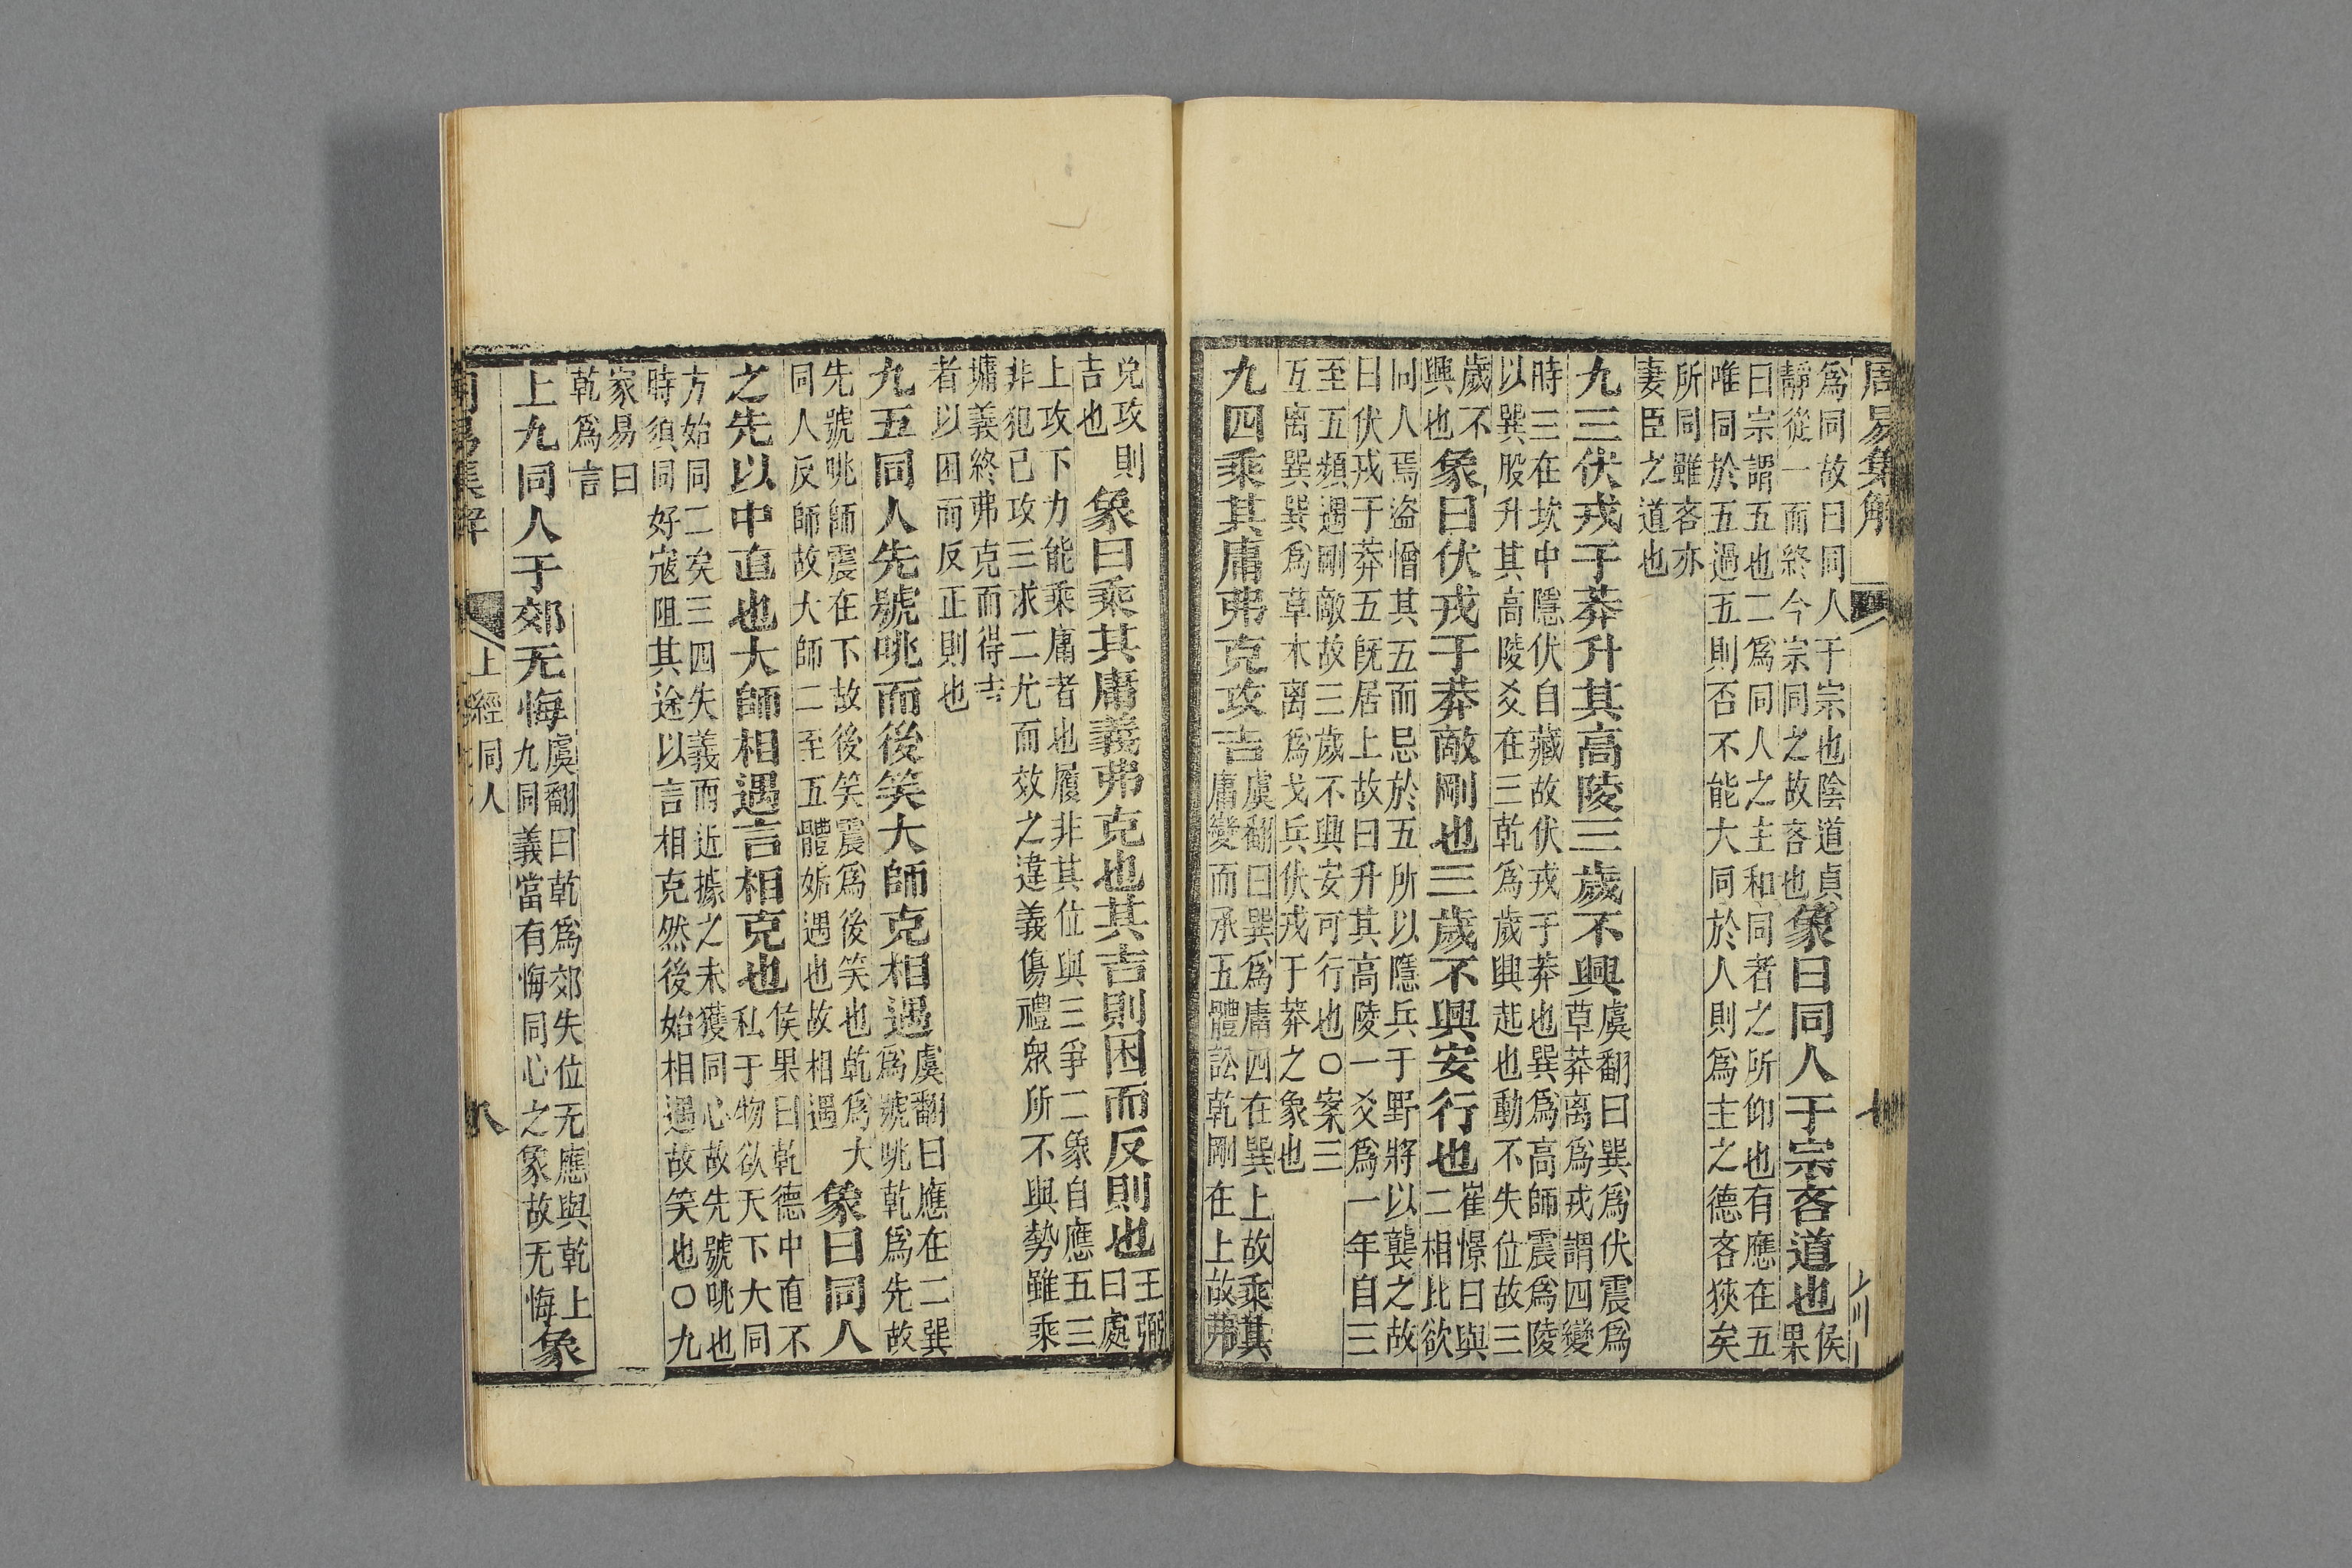 周易集解
七
爲同故曰同人于宗也陰道貞
靜從一而終今宗同之故吝也
象曰同人于宗吝道也
侯
果
曰宗謂五也二爲同人之主和同者之所仰也有應在五
唯同於五過五則否不能大同於人則爲主之德吝狹矣
所同雖吝亦
妻臣之道也
九三伏戎于莽升其高陵三歲不興
虞翻曰巽爲伏震爲
草莽離爲戎謂四變
時三在坎中隱伏自藏故伏戎于莽也巽爲高師震爲陵
以巽股升其高陵爻在三乾爲歲興起也動不失位故三
歲不
興也
象曰伏戎于莽敵剛也三歲不興安行也
崔憬曰與
二相比欲
同人焉盗憎其五而忌於五所以隱兵于野將以襲之故
曰伏戎于莽五旣居上故曰升其高陵一爻爲一年自三
至五頻遇剛敵故三歲不興安可行也○案三
互离巽巽爲草木离爲戈兵伏戎于莽之象也
九四乘其庸弗克攻吉
虞翻曰巽爲庸四在巽上故乘其
庸變而承五體訟乾剛在上故弗
克攻則
吉也
象曰乘其庸義弗克也其吉則困而反則也
王弼
曰處
上攻下力能乘庸者也履非其位與三爭二象自應五三
非犯己攻三求二尤而效之違義傷禮衆所不與勢雖乘
墉義終弗克而得吉
者以困而反正則也
九五同人先號咷而後笑大師克相遇
虞翻曰應在二巽
爲號咷乾爲先故
先號咷師震在下故後笑震爲後笑也乾爲大
同人反師故大師二至五體姤遇也故相遇
象曰同人
之先以中直也大師相遇言相克也
侯果曰乾德中直不
私于物欲天下大同
方始同二矣三四失義而近據之未獲同心故先號咷也
時須同好寇阻其途以言相克然後始相遇故笑也○九
家易曰
乾爲言
上九同人于郊无悔
虞翻曰乾爲郊郊失位无應與乾上
九同義當有悔同心之象故无悔
象
周易集解
上經 同人
八